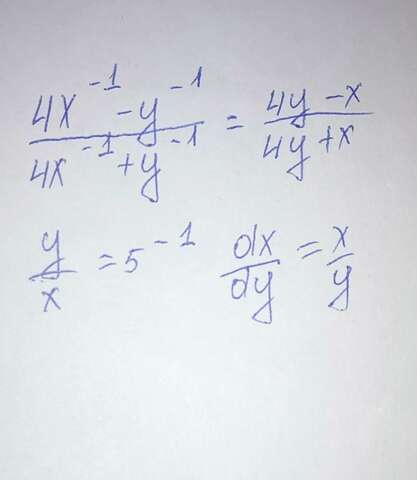 4x⁻¹ - y⁻¹ / 4x⁻¹ + y⁻¹ = 4y - x / 4y + x
y / x = 5⁻¹ dx / dy = x / y